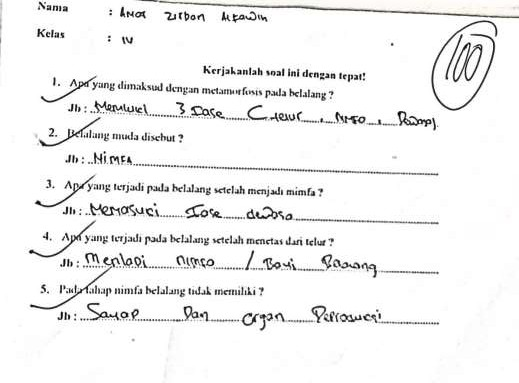 Nama : Anor Zirbon Alfawin
Kelas : IV
100
Kerjakanlah soal ini dengan tepat!
1. Apa yang dimaksud dengan metamorfosis pada belalang ?
Jb : Memiliki 3 Fase (telur, Nimfo,
2. Belalang muda disebut ?
Jb : NiMFA
3. Apa yang terjadi pada belalang setelah menjadi mimfa ?
Jb : Memasuki Fase dewasa
4. Apa yang terjadi pada belalang setelah menetas dari telur ?
Jb : Menjadi nimfo / Bayi
5. Pada tahap nimfa belalang tidak memiliki ?
Jb : Sayap Dan organ Reproduksi